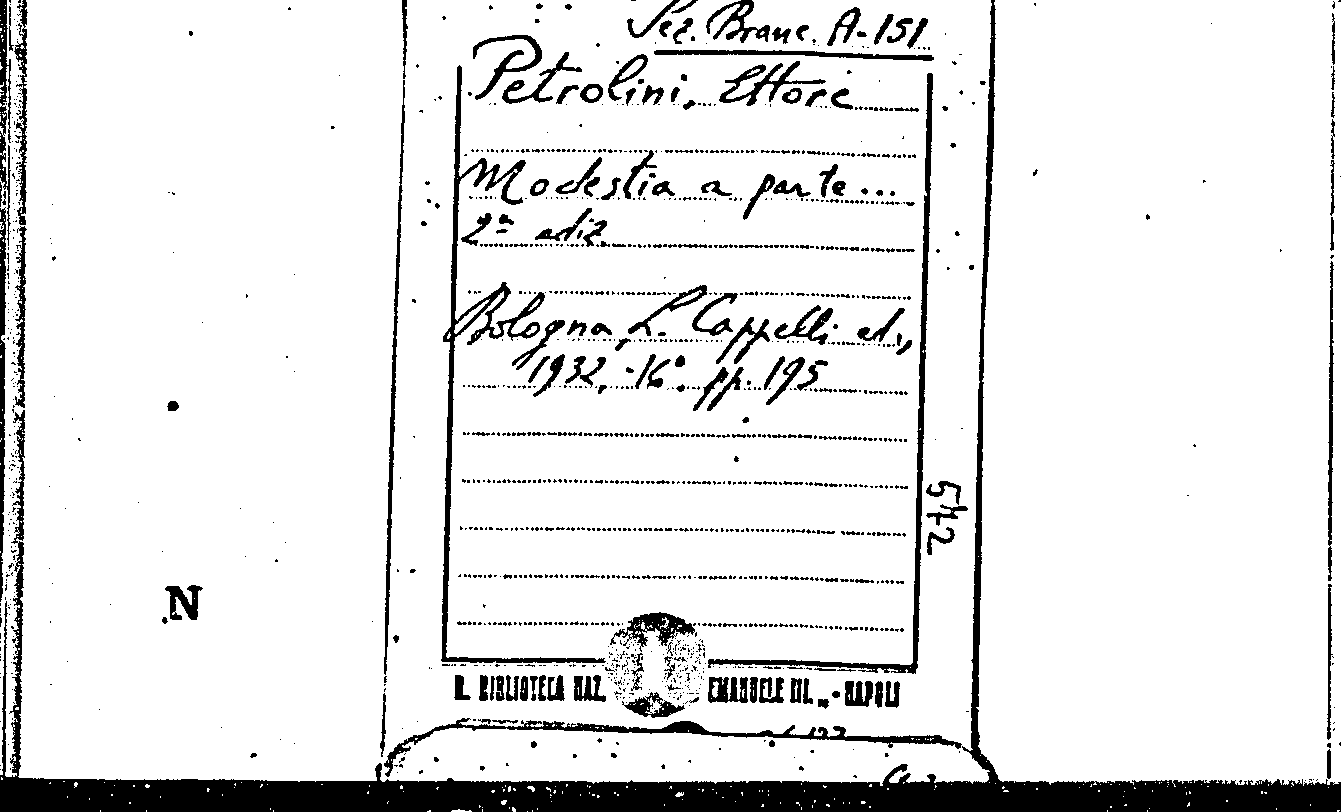 Sez. Branc. A-151
Petrolini, Ettore
Modestia a parte...
2ª ediz.
Bologna, L. Cappelli ed.,
1932, -16°. pp. 195
542
N
R. BIBLIOTECA NAZ. EMANUELE III. „ - NAPOLI